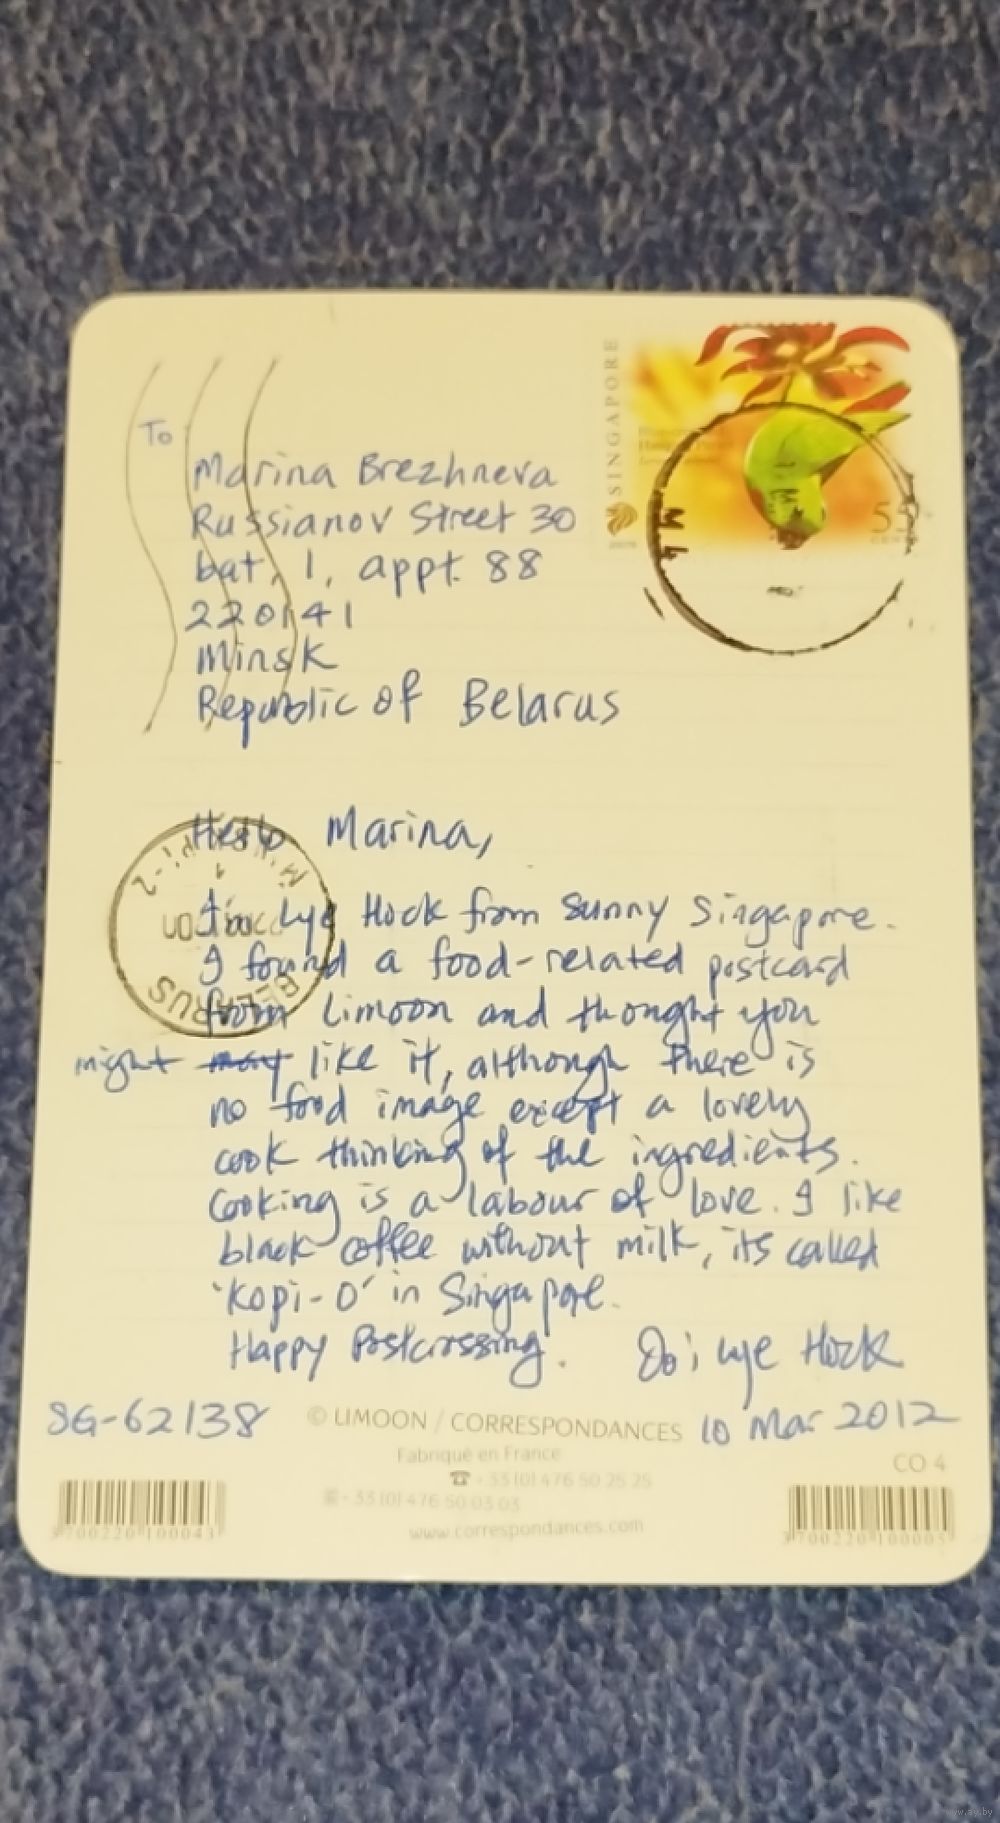 SINGAPORE
55
To
Marina Brezhneva
Russianov Street 30
bat, 1, appt. 88
220141
Minsk
Republic of Belarus
Hello Marina,
I'm Wye Hock from sunny Singapore.
I found a food-related postcard
from Limoon and thought you
might may like it, although there is
no food image except a lovely
cook thinking of the ingredients.
Cooking is a labour of love. I like
black coffee without milk, its called
'Kopi-O' in Singapore.
Happy Postcrossing. Ooi Wye Hock
SG-62138
© LIMOON / CORRESPONDANCES
10 Mar 2012
Fabriqué en France
CO 4
+33 (0) 476 50 25 25
+33 (0) 476 50 03 03
www.correspondances.com
3 700220 100043
3 700220 100005
BELARUS
www.ay.by